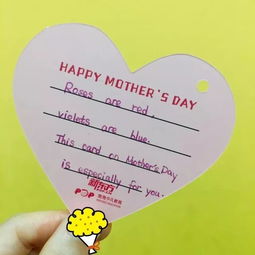 HAPPY MOTHER'S DAY
Roses are red,
violets are blue.
This card on Mother's Day
is especially for you.
新东方
POP